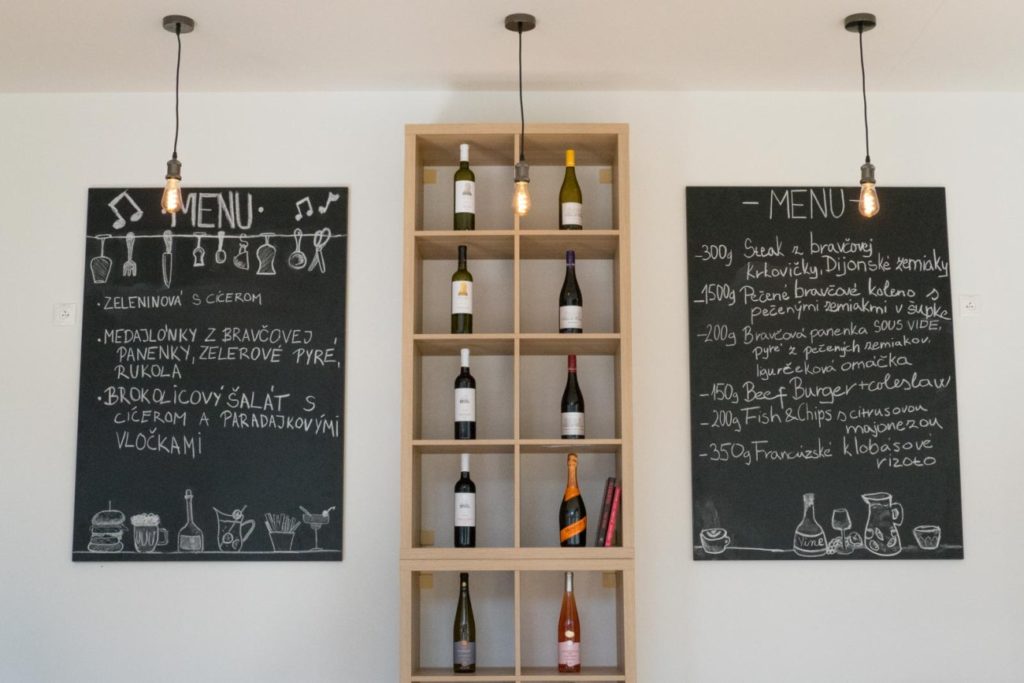 ·MENU·
· ZELENINOVÁ S CÍČEROM
· MEDAJLÓNKY Z BRAVČOVEJ
PANENKY, ZELEROVÉ PYRÉ,
RUKOLA
· BROKOLICOVÝ ŠALÁT S
CÍČEROM A PARADAJKOVÝMI
VLOČKAMI
- MENU -
-300g Steak z bravčovej
Krkovičky, Dijonské zemiaky
-1500g Pečené bravčové koleno s
pečenými zemiakmi v šupke
-200g Bravčová panenka SOUS VIDE,
Pyré z pečených zemiakov,
ligurčeková omáčka
-150g Beef Burger + coleslaw
-200g Fish & Chips s citrusovou
majonézou
-350g Francúzské klobásové
rizoto
Vine